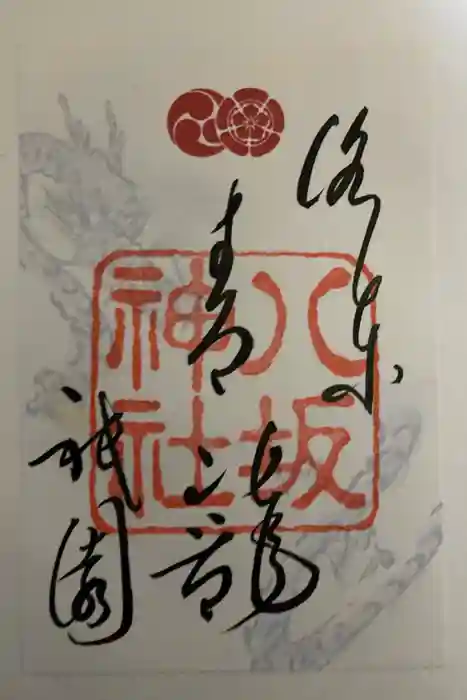 洛東
青龍
祇園
八坂
神社